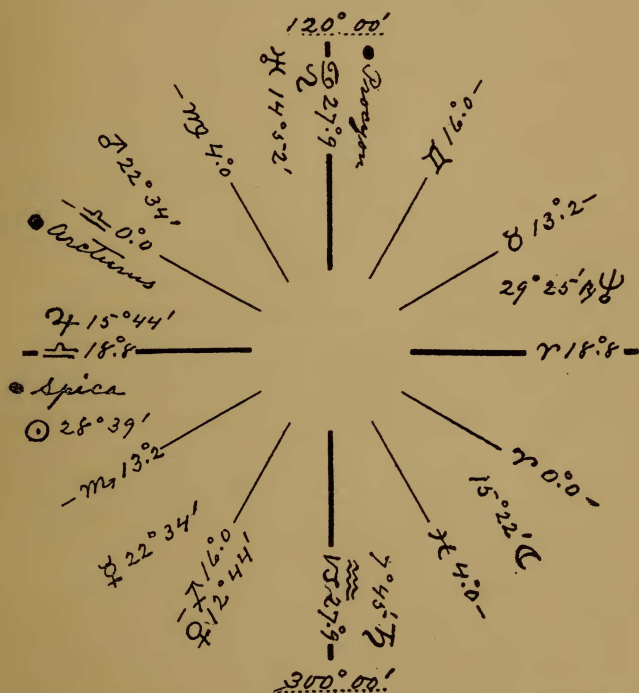 120° 00'
♋ 27°.9
♌
♅ 14° 52'
Procyon
♊ 16°.0
♉ 13°.2
29° 25' ℞ ♆
♈ 18°.8
♈ 0°.0
15° 22' ☾
♓ 4°.0
7° 45' ♄
♒
♑ 27°.9
300° 00'
♐ 16°.0
♀ 12° 44'
☿ 22° 34'
♏ 13°.2
☉ 28° 39'
Spica
♎ 18°.8
♃ 15° 44'
Arcturus
♎ 0°.0
♂ 22° 34'
♍ 4°.0